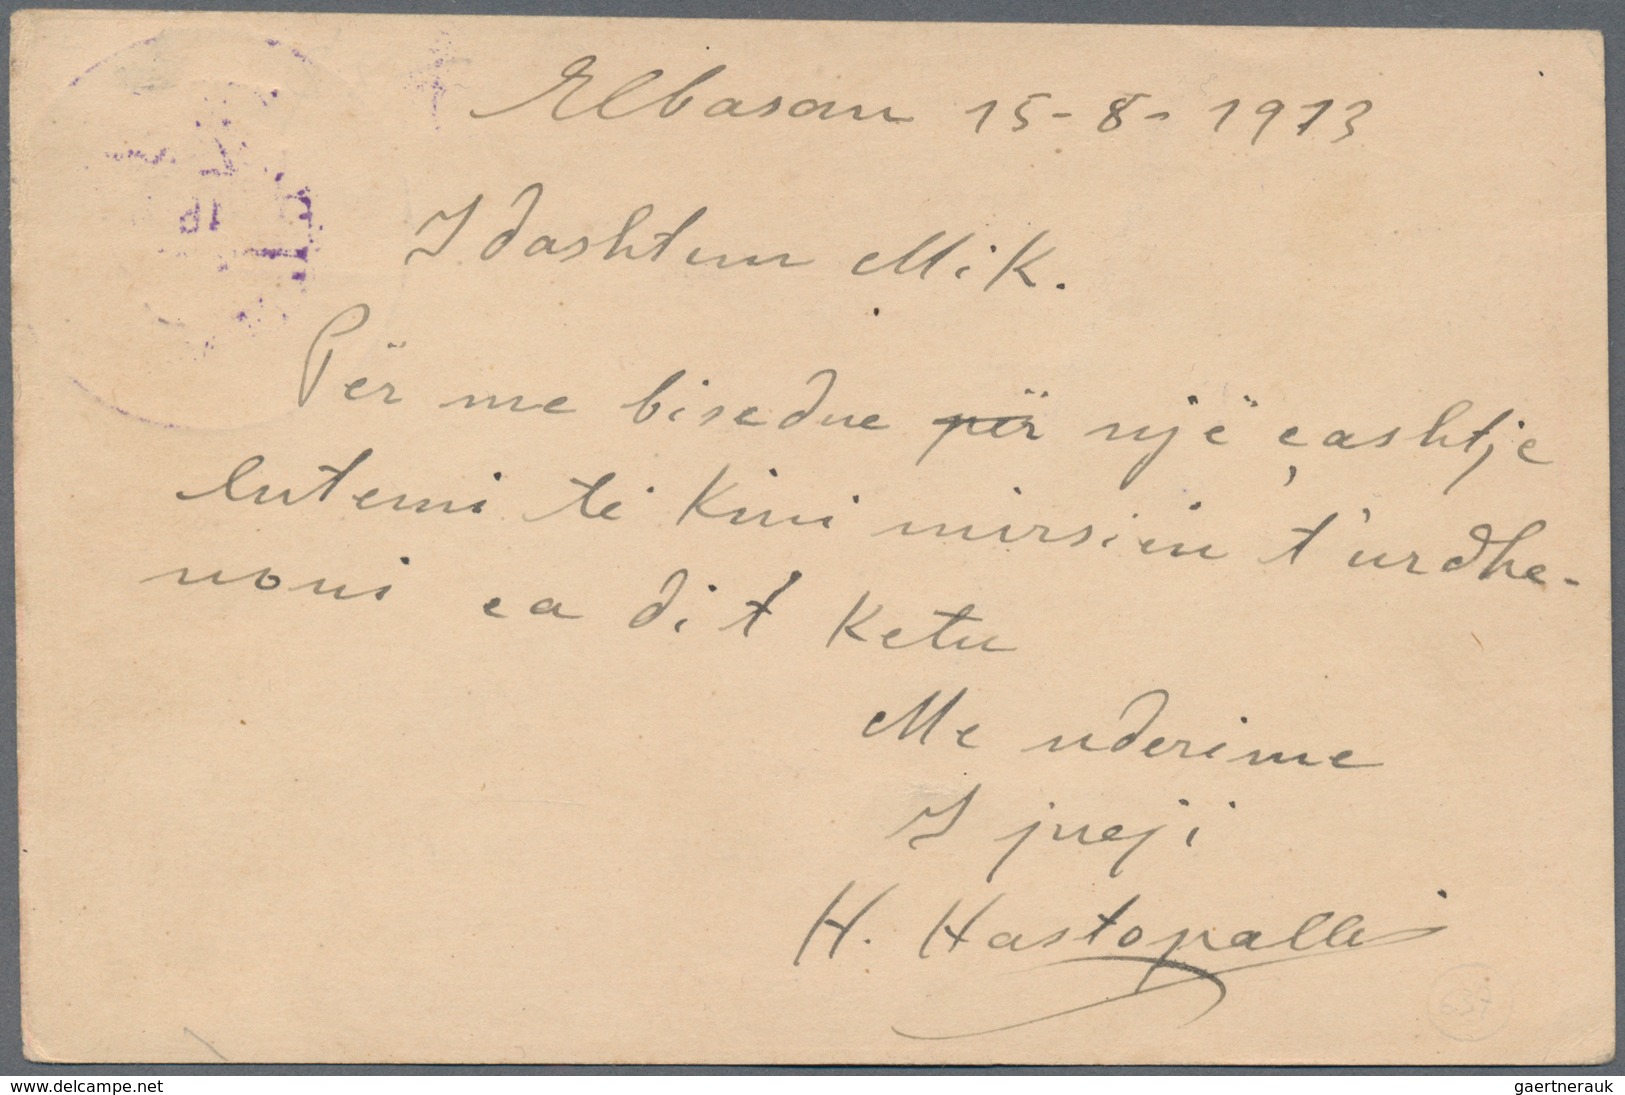 Elbasan 15-8-1913
I dashtun Mik.
Për me bisedue për një çashtje
lutemi të kini mirsien t'urdhe-
noni ca dit ketu
Me nderime
I jueji
H. Hastopalli
16
637
www.delcampe.net
gaertnerauk